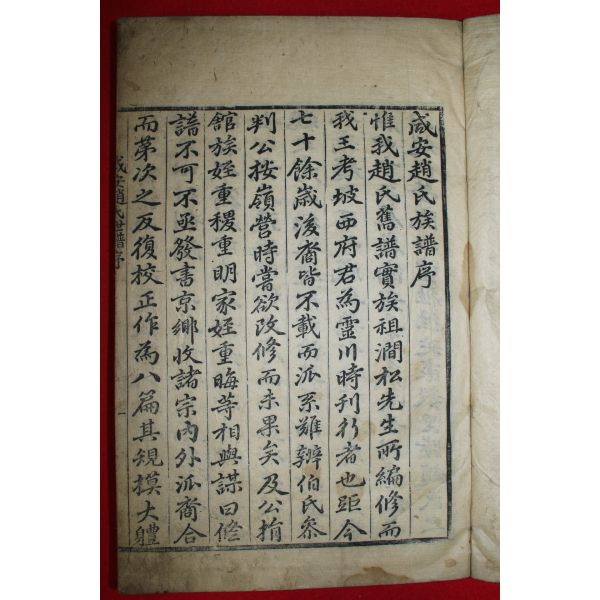 咸安趙氏族譜序
惟我趙氏舊譜實族祖澗松先生所編修而
我王考坡西府君為靈川時刊行者也距今
七十餘歲後裔皆不載而派系難辨伯氏叅
判公按嶺營時嘗欲改修而未果矣及公捐
舘族姪重稷重明家姪重晦等相與謀曰修
譜不可不亟發書京鄉收諸宗內外派裔合
而第次之反復校正作為八篇其規模大軆
咸安趙氏世譜序
一